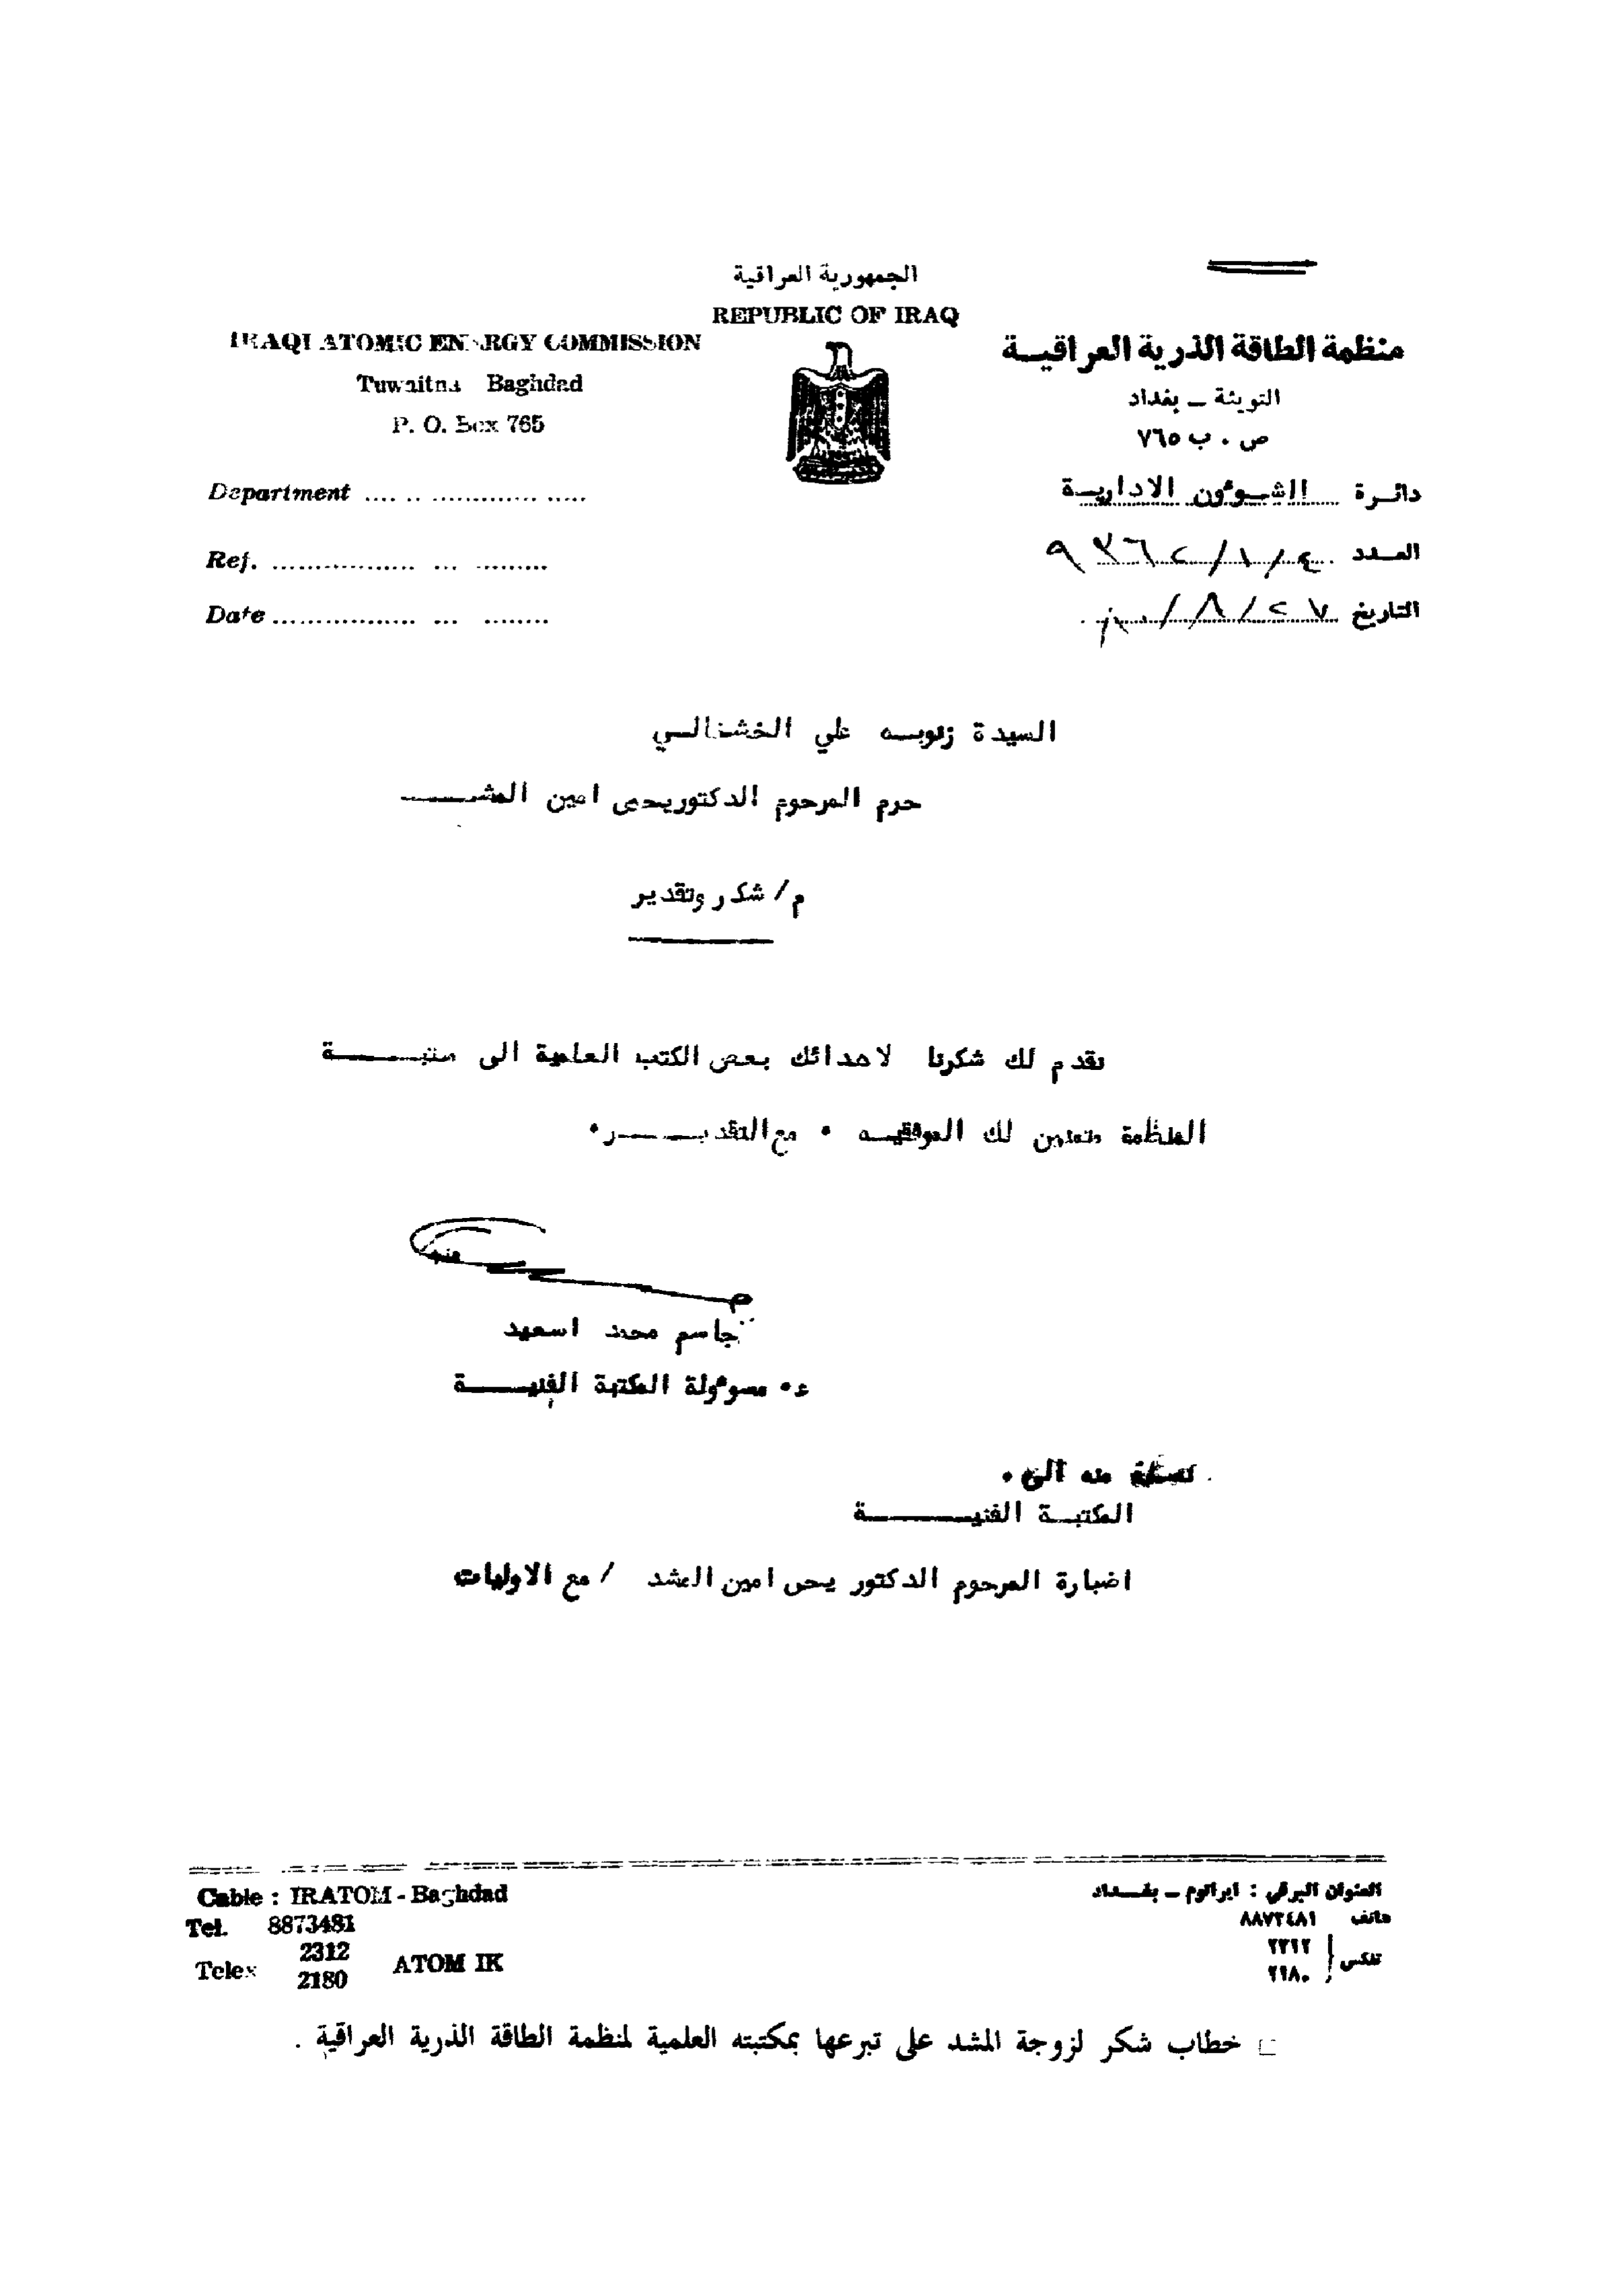 الجمهورية العراقية
REPUBLIC OF IRAQ
IRAQI ATOMIC ENERGY COMMISSION
Tuwaitha Baghdad
P. O. Box 765
Department
Ref.
Date
منظمة الطاقة الذرية العراقيــة
التويثة ــ بغداد
ص . ب ٧٦٥
دائـرة الشـوءون الاداريــة
العــدد
التاريخ ٢٧/٨/
السيدة زنوبـه علي الخشخالـي
حرم المرحوم الدكتوريحيى امين المشـــ
م/ شكر وتقدير
نقدم لك شكرنا لاهدائك بعض الكتب العلمية الى
المنظمة متمنين لك الموفقيـه • مع التقديـــــر•
جاسم محمد اسعيد
ع• مسوءولة المكتبة الفنيـــــة
نسخة منه الى •
المكتبــة الفنيـــــــة
اضبارة المرحوم الدكتور يحى امين المشد / مع الاوليات
Cable : IRATOM - Baghdad
Tel. 8873481
Telex 2312
2180 ATOM IK
العنوان البرقي : ايراتوم ــ بغــداد
هاتف ٨٨٧٣٤٨١
تلكس ٢٣١٢
٢١٨٠
□ خطاب شكر لزوجة المشد على تبرعها بمكتبته العلمية لمنظمة الطاقة الذرية العراقية .